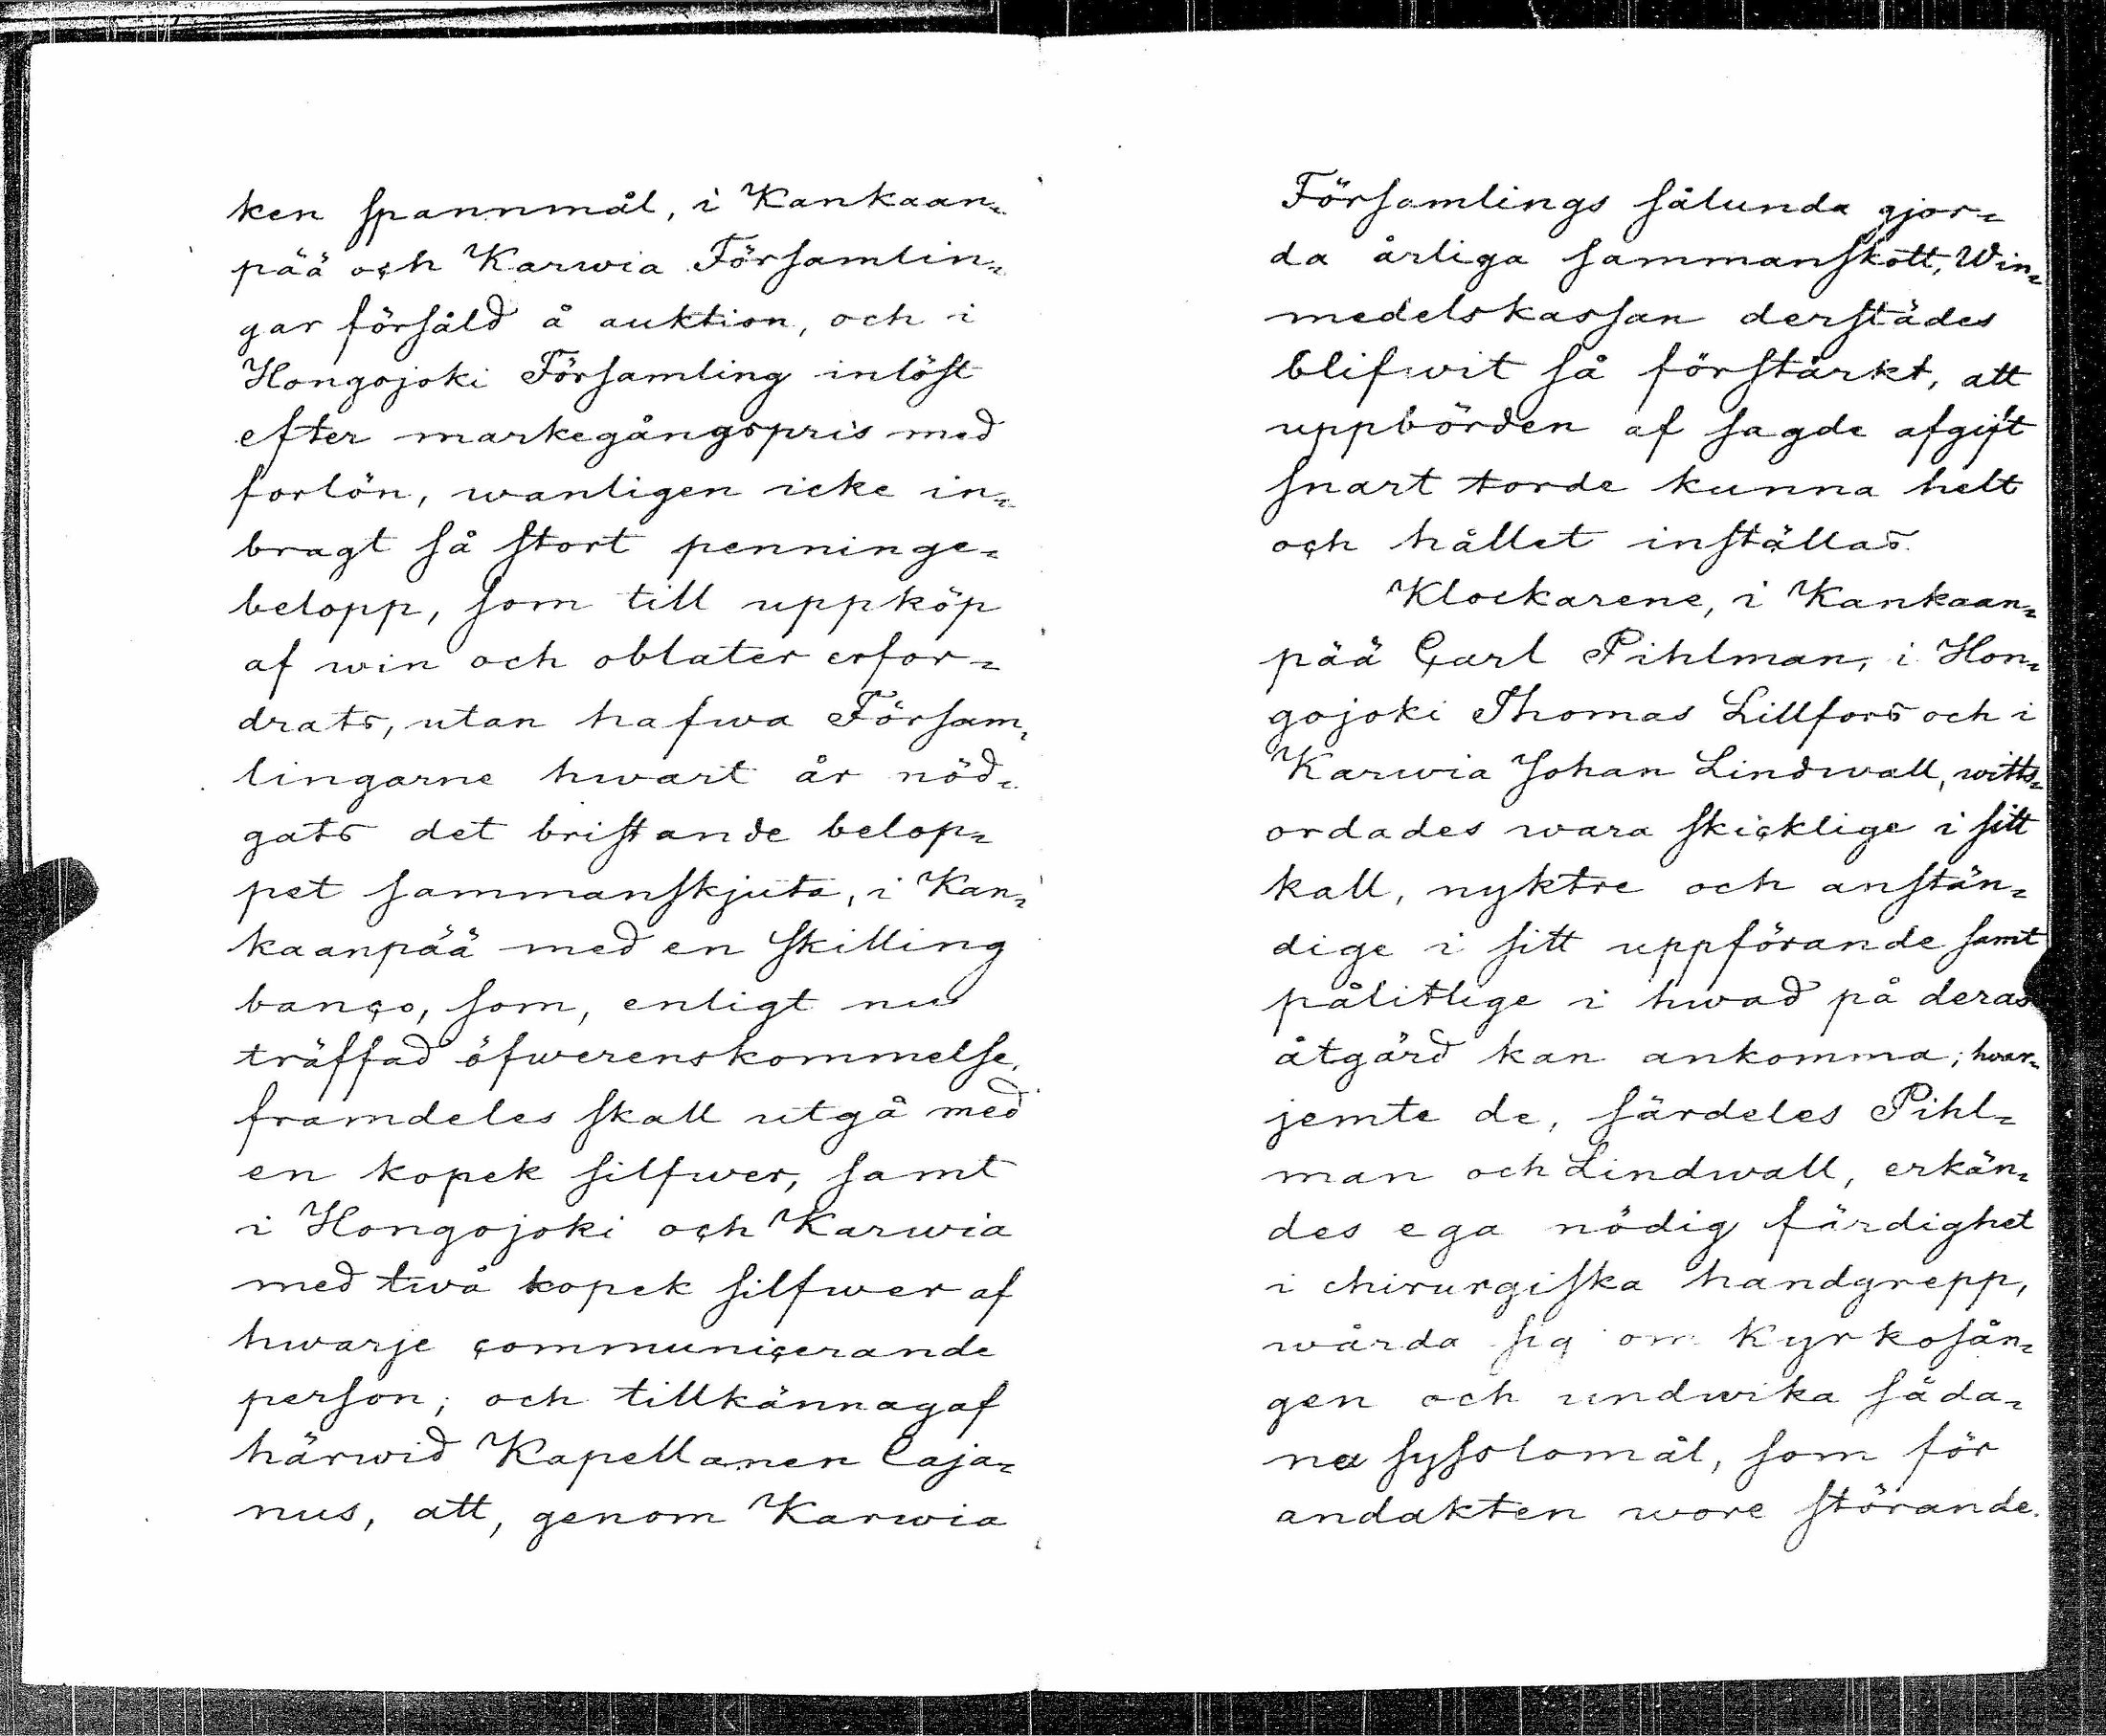 ken spannmål, i Kankaan=
pää och Karwia Församlin=
gar försåld å auktion, och i
Hongojoki Församling inlöst
efter markegångspris med
forlön, wanligen icke in=
bragt så stort penninge=
belopp, som till uppköp
af win och oblater erfor=
drats, utan hafwa Försam=
lingarne hwart år nöd=
gats det bristande belop=
pet sammanskjuta, i Kan=
kaanpää med en skilling
banco, som, enligt nu
träffad öfwerenskommelse,
framdeles skall utgå med
en kopek silfwer, samt
i Hongojoki och Karwia
med twå kopek silfwer af
hwarje communicerande
person; och tillkännagaf
härwid Kapellanen Caja=
nus, att, genom Karwia
Församlings sålunda gjor=
da årliga sammanskott, Win=
medelskassan derstädes
blifwit så förstärkt, att
uppbörden af sagde afgift
snart torde kunna helt
och hållet inställas.
Klockarene, i Kankaan=
pää Carl Pihlman, i Hon=
gojoki Thomas Lillfors och i
Karwia Johan Lindwall, witts=
ordades wara skicklige i sitt
kall, nyktre och anstän=
dige i sitt uppförande samt
pålitlige i hwad på deras
åtgärd kan ankomma; hwar=
jemte de, särdeles Pihl=
man och Lindwall, erkän=
des ega nödig färdighet
i chirurgiska handgrepp,
wårda sig om Kyrkosån=
gen och undwika såda=
na syslomål, som för
andakten wore störande.